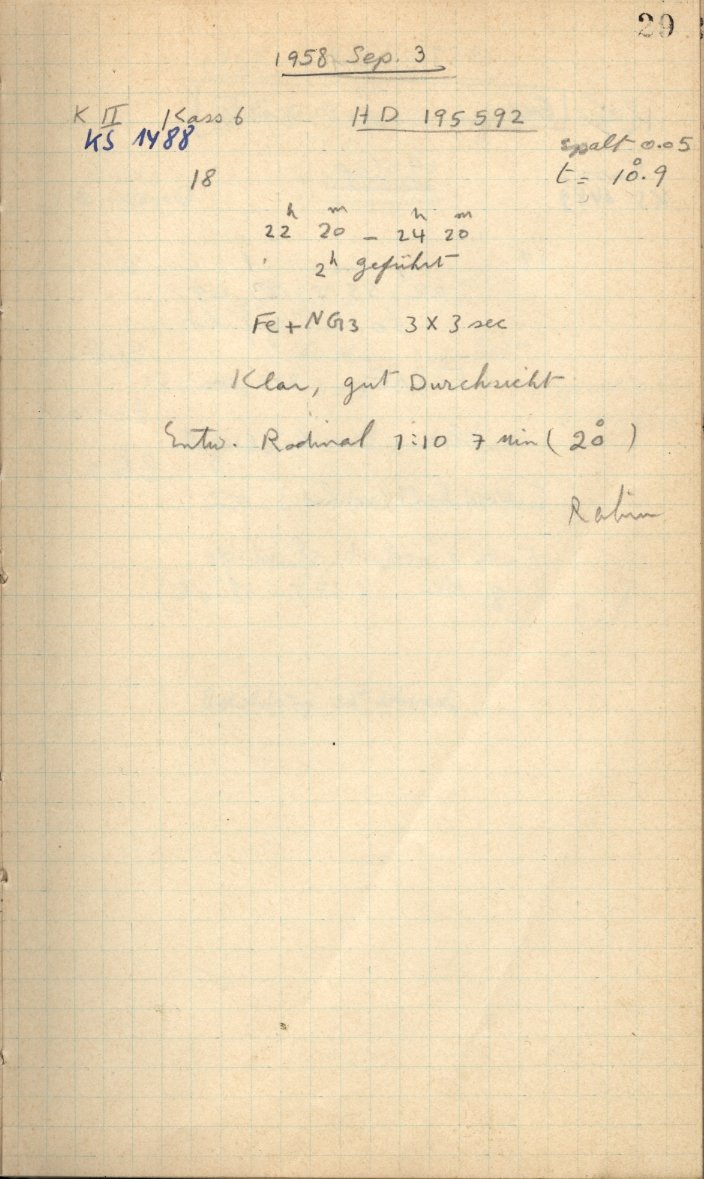 29
1958 Sep. 3
K II Kass 6 HD 195592
KS 1488
spalt 0.05
18 t = 10°.9
22h 20m – 24h 20m
2h geführt
Fe + NG3 3 x 3 sec
Klar, gut Durchsicht
Entw. Rodinal 1:10 7 Min (20°)